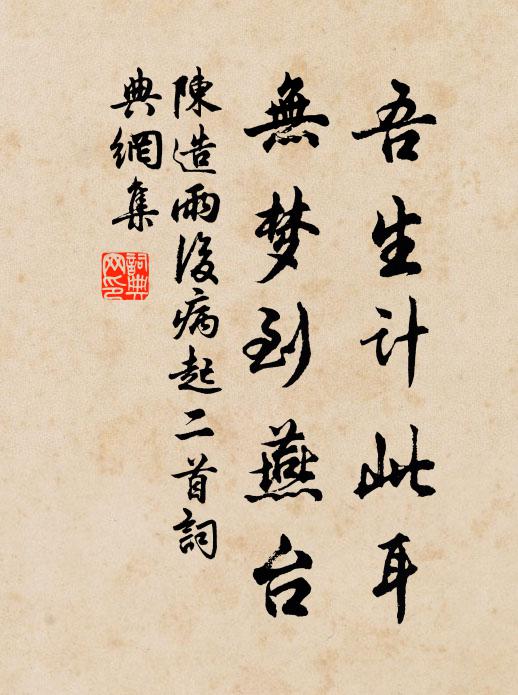 吾生计此耳
無梦到燕台
陳造雨後病起二首詞
典網集
詞典網印